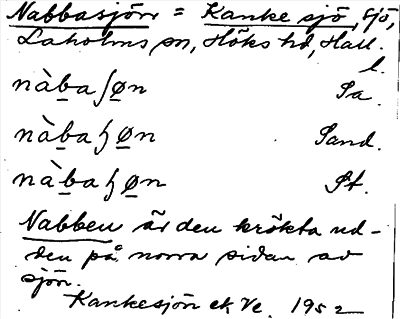 Nabbasjön = Kanke sjö, sjö,
Laholms sn, Höks hd, Hall. l.
nàba ʃøn Sa.
nàba ɧøn Sand.
nàba ɧøn St.
Nabben är den krökta ud-
den på norra sidan av
sjön.
Kankesjön ek Ve. 1952